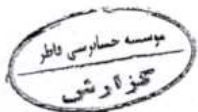 موسسه حسابرسی فاطر
گزارش